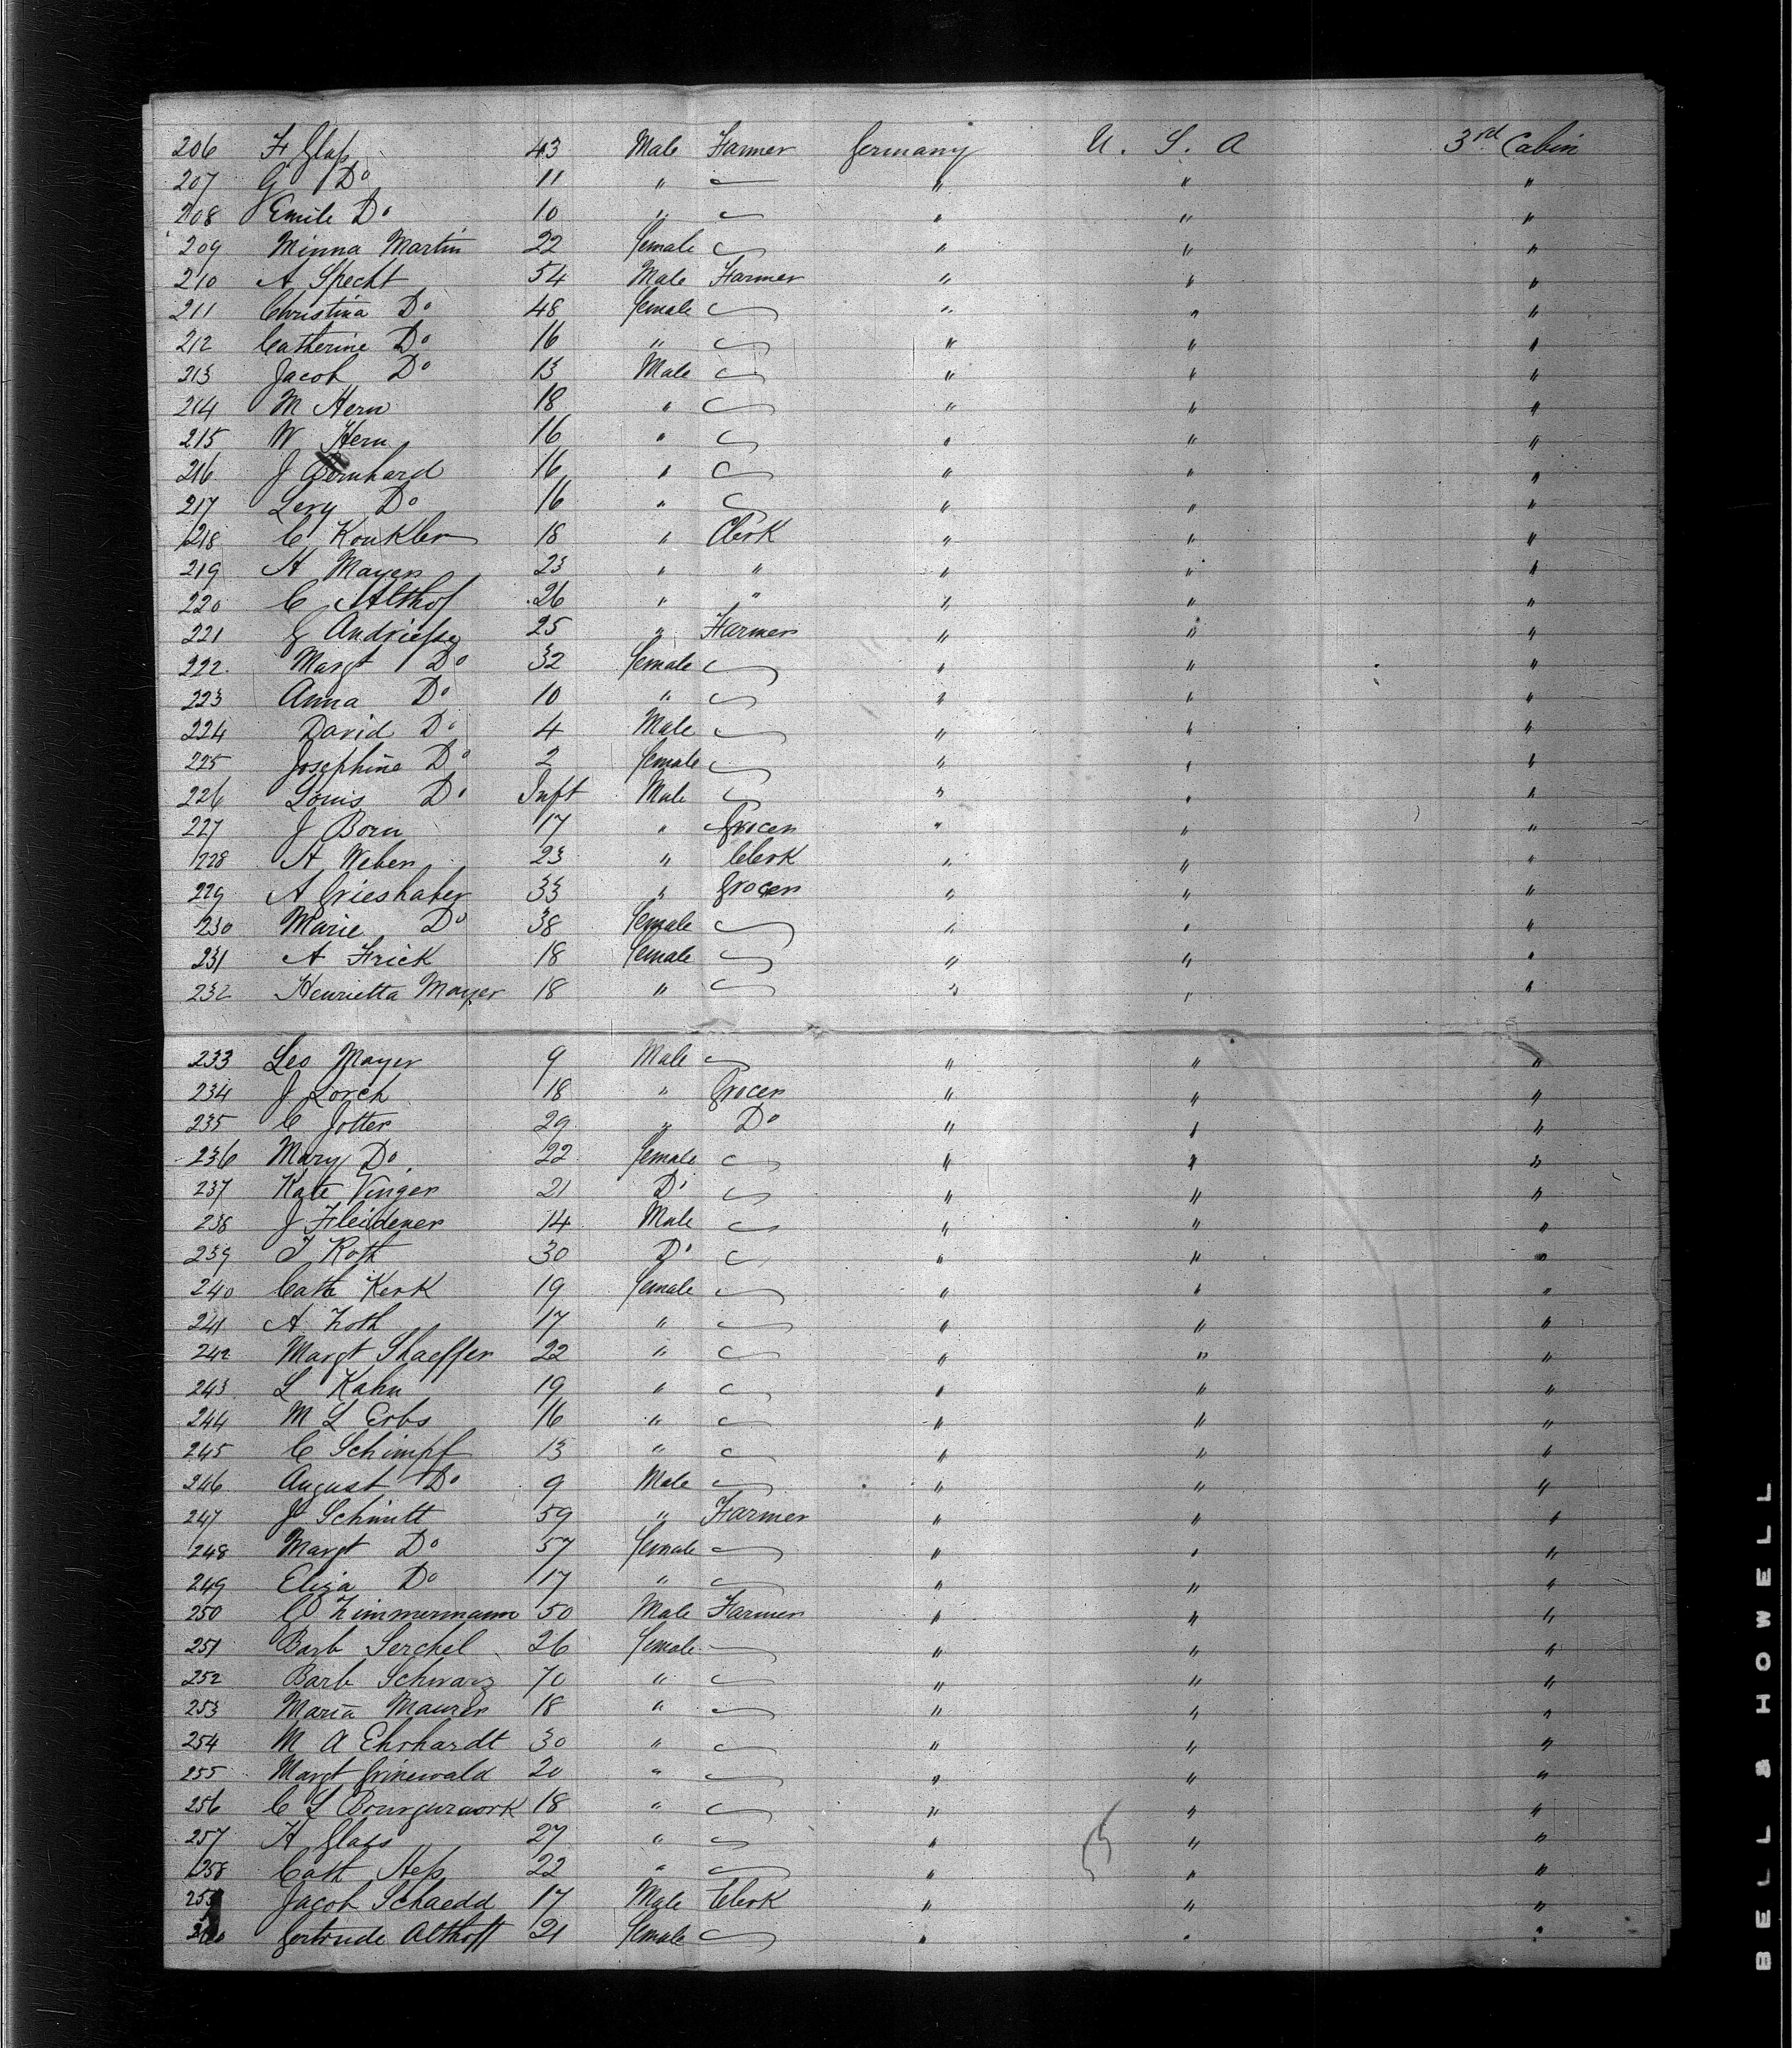 206 Fr Glass 43 Male Farmer Germany U. S. A 3rd Cabin
207 G Do 11 " " " "
208 Emile Do 10 " " " "
209 Minna Martin 22 female " " "
210 A Specht 54 Male Farmer " " "
211 Christina Do 48 female " " "
212 Catherine Do 16 " " " "
213 Jacob Do 13 Male " " "
214 M Hern 18 " " " "
215 W Hern 16 " " " "
216 J Bernhard 16 " " " "
217 Levy Do 16 " " " "
218 C Koukler 18 " Clerk " " "
219 H Mayer 23 " " " " "
220 C Althof 26 " " " " "
221 G Andriesse 25 " Farmer " " "
222 Margt Do 32 female " " "
223 Anna Do 10 " " " "
224 David Do 4 Male " " "
225 Josephine Do 2 female " " "
226 Louis Do Inft Male " " "
227 J Born 17 " Grocer " " "
228 A Weber 23 " Clerk " " "
229 A Grieshaber 33 " Grocer " " "
230 Marie Do 38 female " " "
231 A Frick 18 female " " "
232 Henrietta Mayer 18 " " " "
233 Leo Mayer 9 Male " " "
234 J Lorch 18 " Grocer " " "
235 C Jotter 29 " Do " " "
236 Mary Do 22 female " " "
237 Kate Vinger 21 Do " " "
238 J Fleidener 14 Male " " "
239 J Roth 30 Do " " "
240 Cath Kerk 19 female " " "
241 A Zoth 17 " " " "
242 Margt Shaeffer 22 " " " "
243 L Kahn 19 " " " "
244 M L Erbs 16 " " " "
245 C Schimpf 13 " " " "
246 August Do 9 Male " " "
247 J Schmitt 59 " Farmer " " "
248 Margt Do 57 female " " "
249 Eliza Do 17 " " " "
250 C Zimmermann 50 Male Farmer " " "
251 Barb Serchel 26 female " " "
252 Barb Schwarz 70 " " " "
253 Maria Maurer 18 " " " "
254 M A Ehrhardt 30 " " " "
255 Margt Grinewald 20 " " " "
256 C L 18 " " " "
257 H Glass 27 " " " "
258 Cath Hess 22 " " " "
259 Jacob Schaedd 17 Male Clerk " " "
260 Gertrude Althoff 21 female " " "
BELL & HOWELL